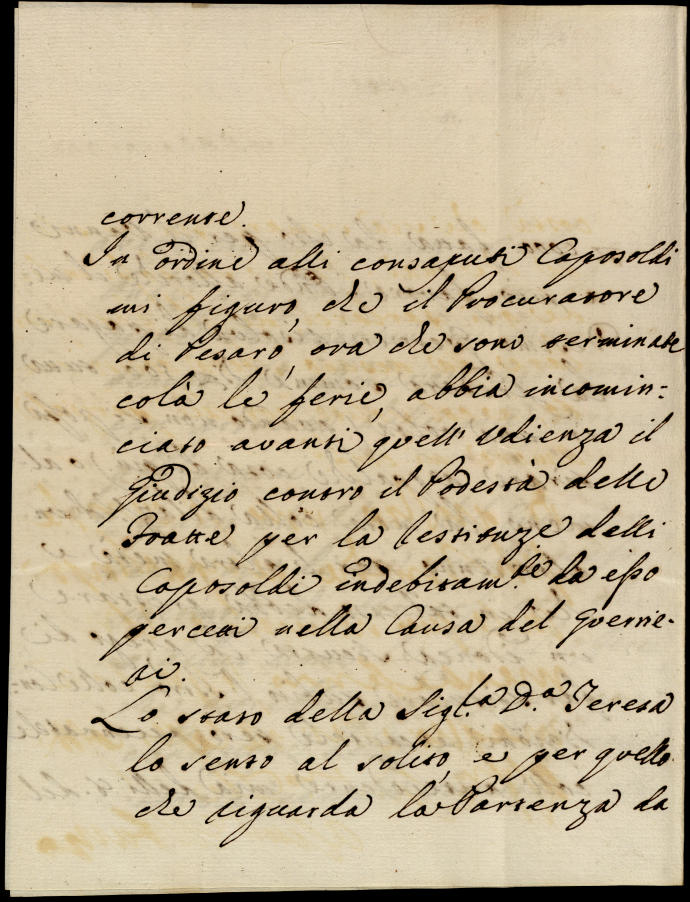 corrente.
In ordine alli consaputi Caposoldi
mi figuro, che il Procuratore
di Pesaro, ora che sono terminate
colà le ferie, abbia incomin=
ciato avanti quell' Udienza il
Giudizio contro il Podestà delle
Fratte per la Restituze delli
Caposoldi indebitam.te da esso
percetti nella Causa del Guerrie-
ri.
Lo stato della Sig.ra D.a Teresa
lo sento al solito, e per quello
che riguarda la Partenza da